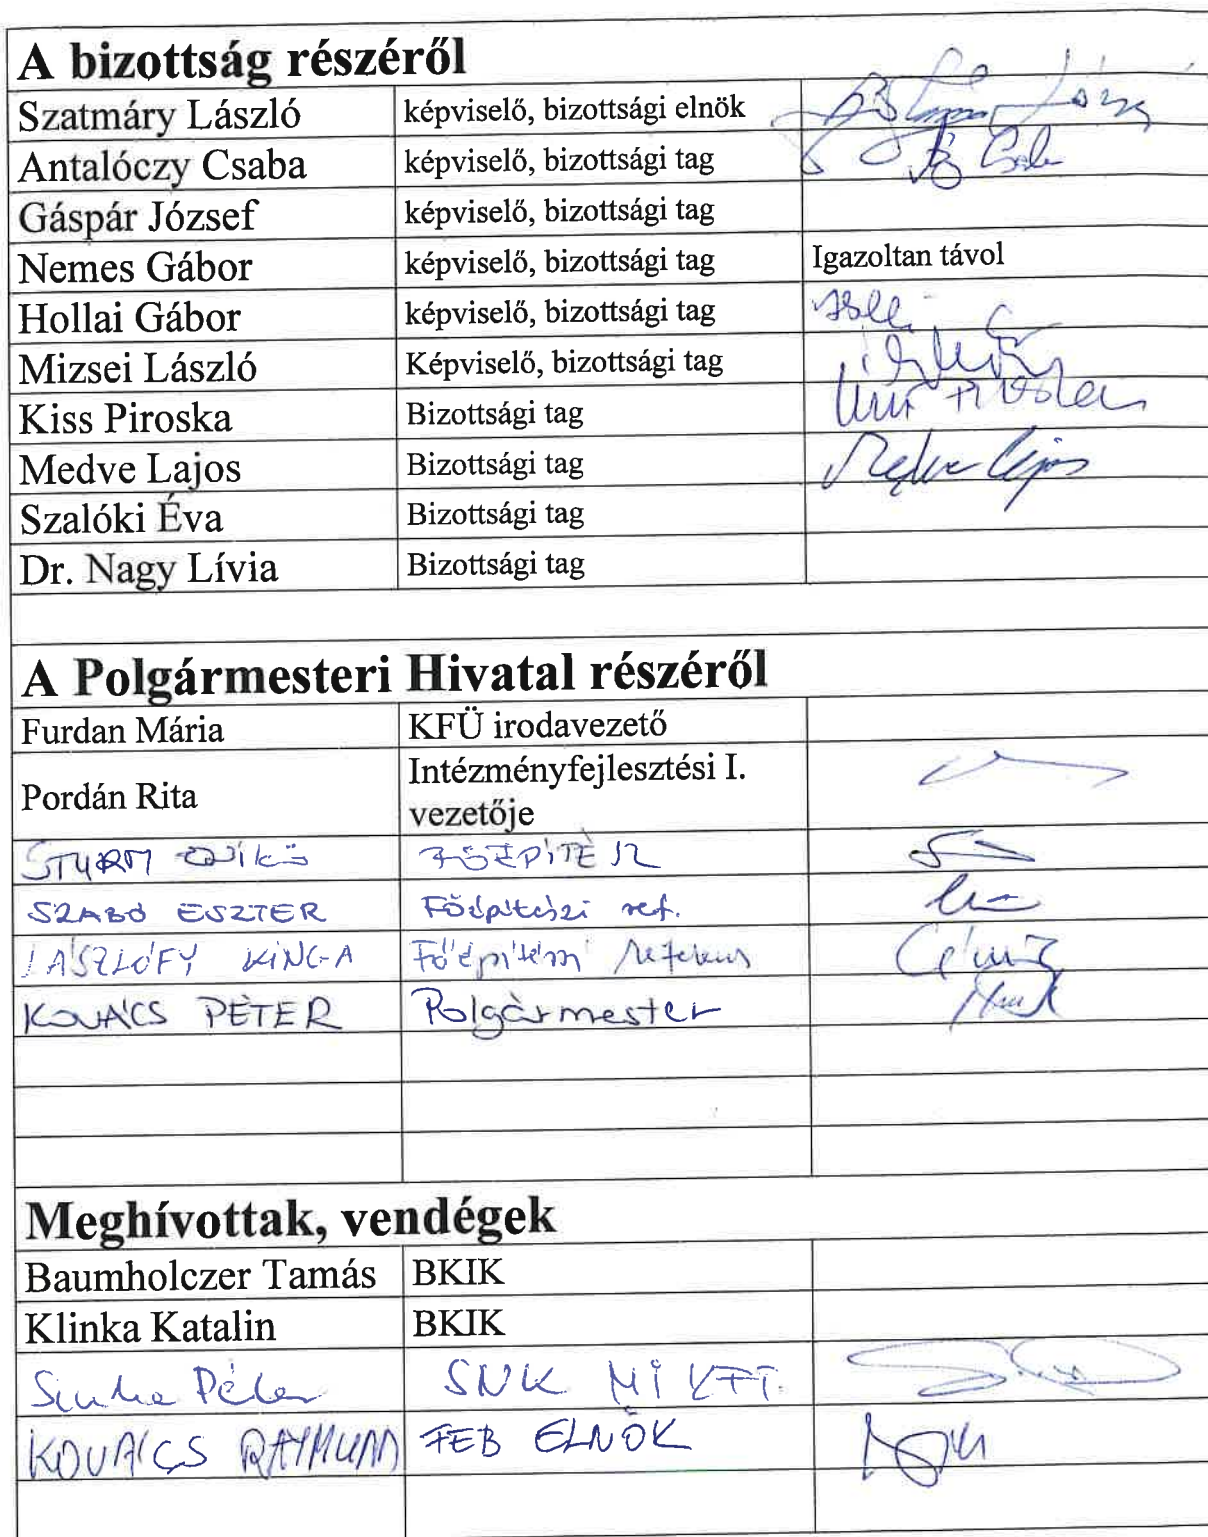 A bizottság részéről
Szatmáry László képviselő, bizottsági elnök
Antalóczy Csaba képviselő, bizottsági tag
Gáspár József képviselő, bizottsági tag
Nemes Gábor képviselő, bizottsági tag Igazoltan távol
Hollai Gábor képviselő, bizottsági tag
Mizsei László Képviselő, bizottsági tag
Kiss Piroska Bizottsági tag Kiss Piroska
Medve Lajos Bizottsági tag Medve Lajos
Szalóki Éva Bizottsági tag
Dr. Nagy Lívia Bizottsági tag
A Polgármesteri Hivatal részéről
Furdan Mária KFÜ irodavezető
Pordán Rita Intézményfejlesztési I.
vezetője
STURM FŐÉPÍTÉSZ
SZABÓ ESZTER Főépítészi ref.
LÁSZLÓFY KINGA Főépítészi referens
KOVÁCS PÉTER Polgármester
Meghívottak, vendégek
Baumholczer Tamás BKIK
Klinka Katalin BKIK
Péter SNK MI KFT.
KOVÁCS RAYMUND FEB ELNÖK